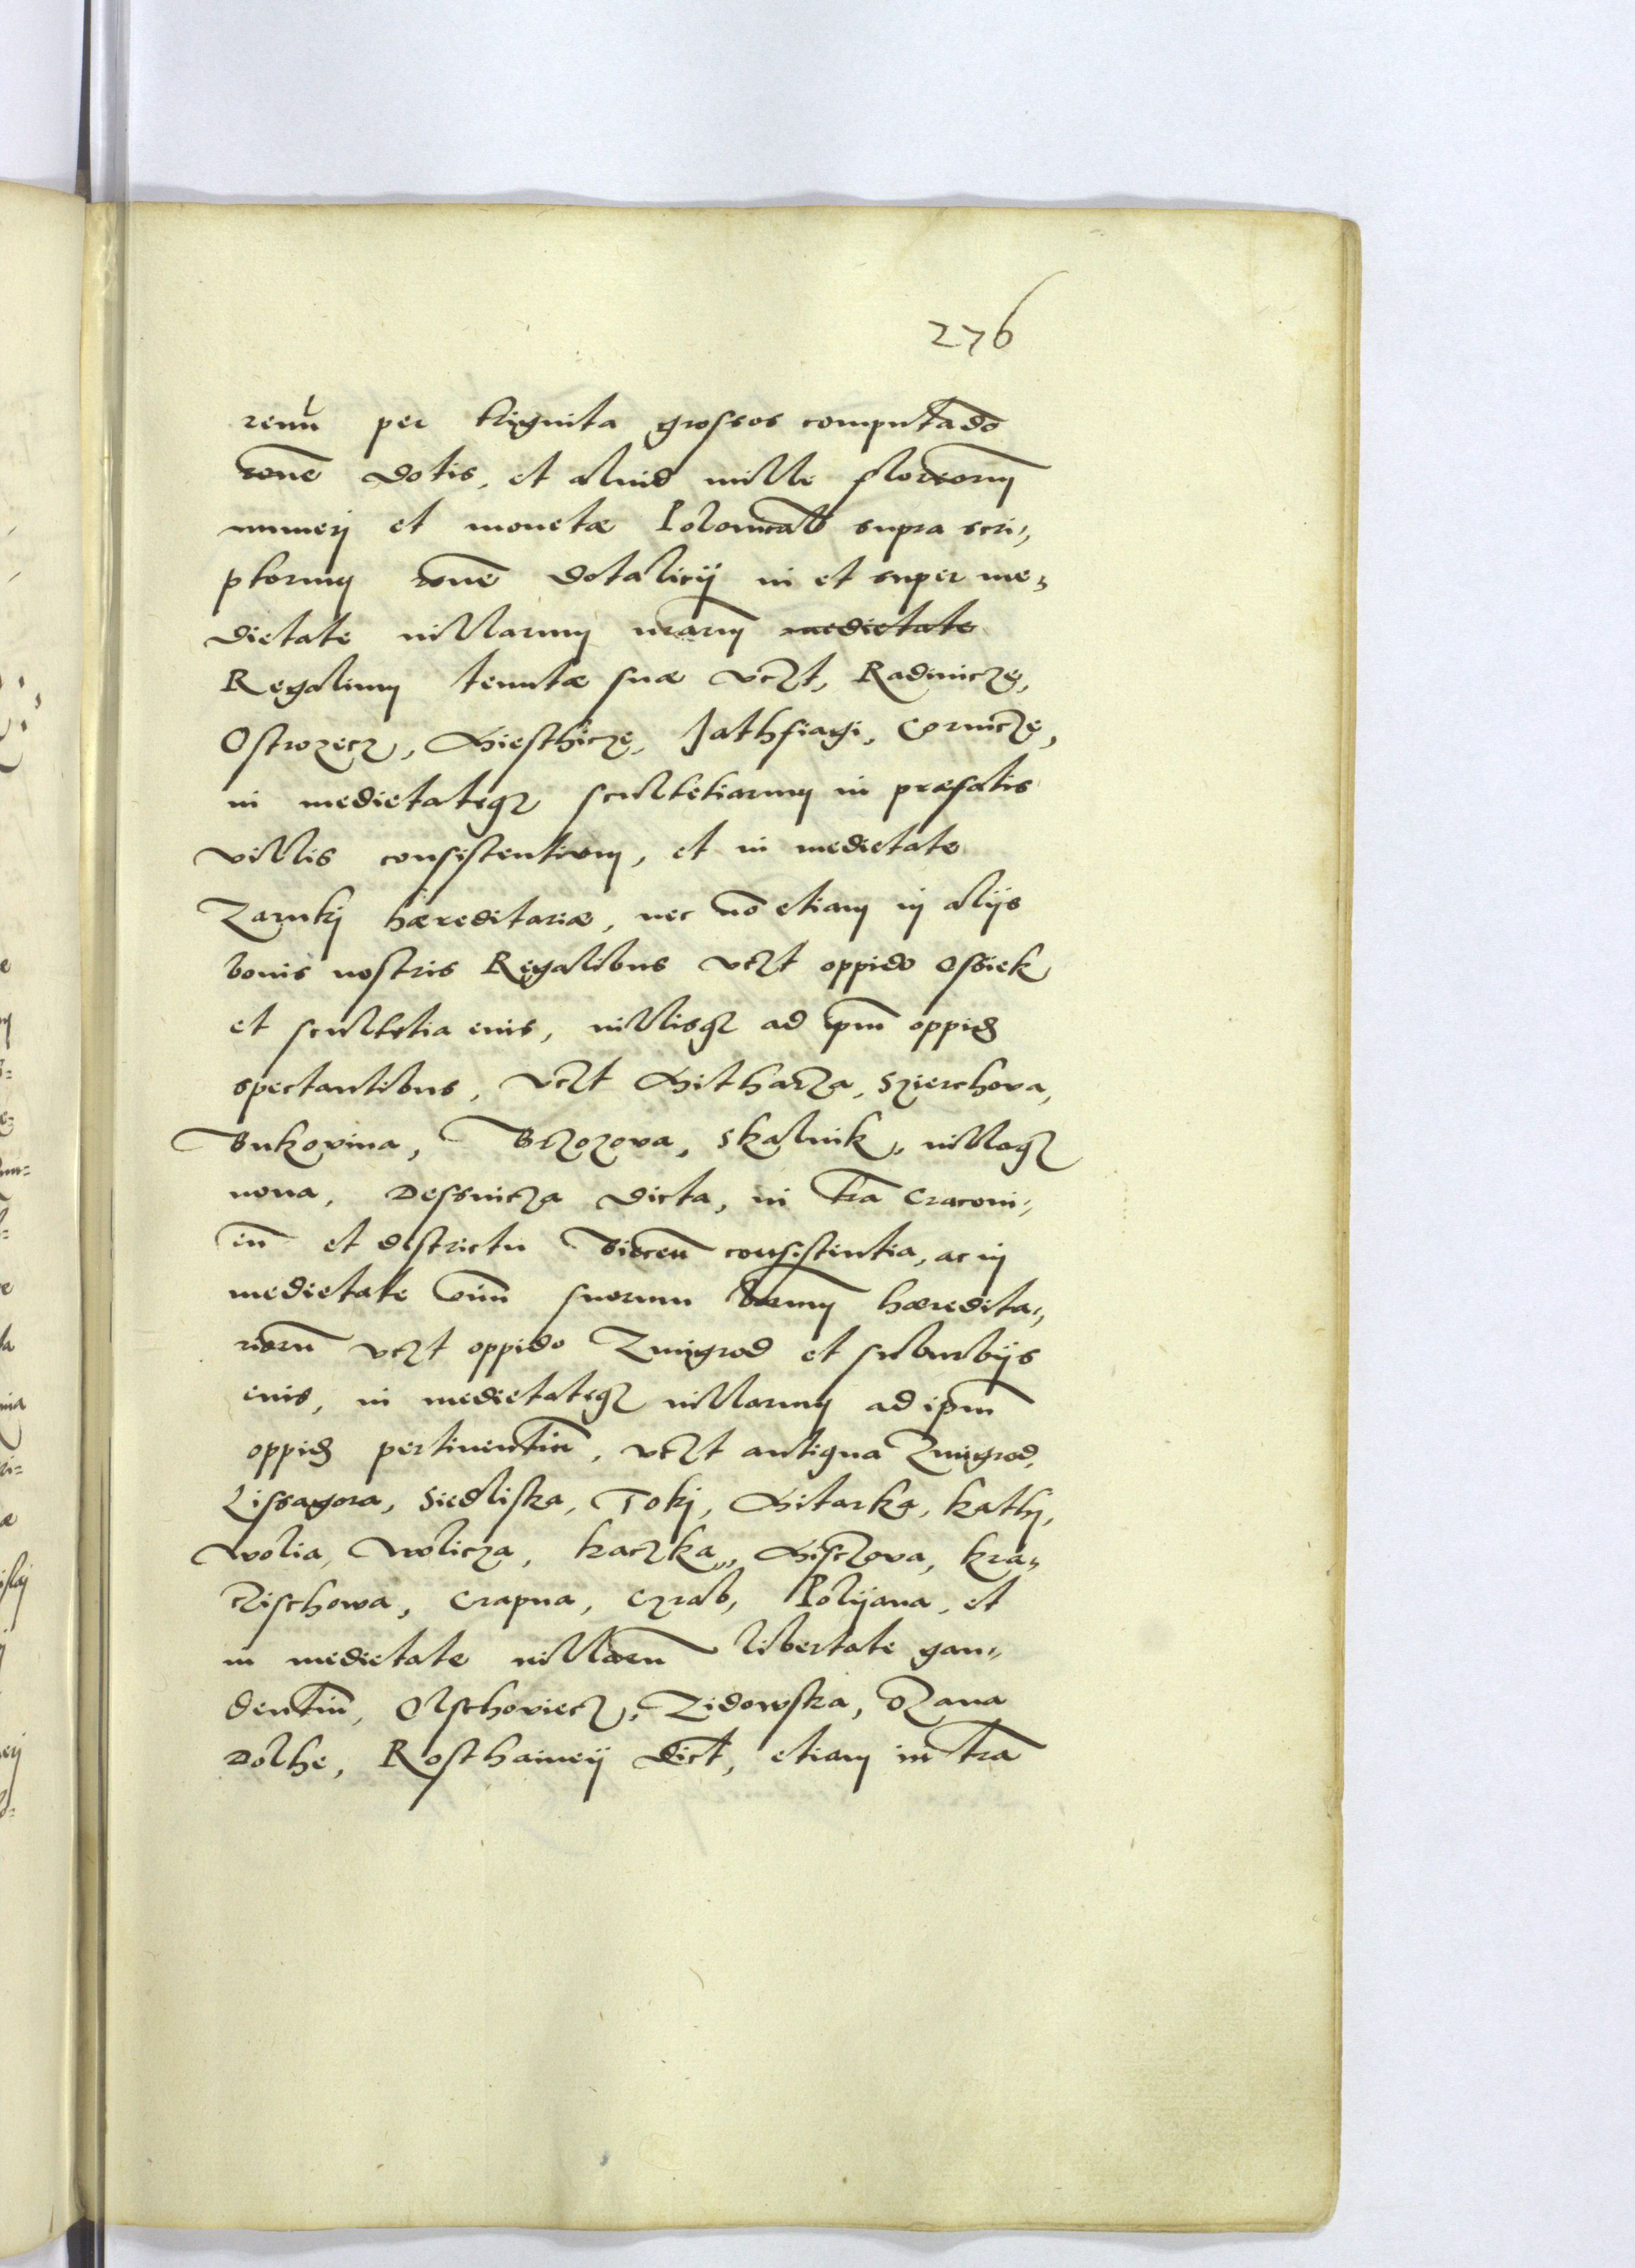 276
renū per triguita grossos computādo
rone dotis, et aliud mille florenorum
numeri et monetæ Polonicalis supra scri„
ptorum rone dotalicij in et super me„
dietate villarum nrarum medietate
Regalium tenutæ suæ vczt, Radinicze,
Ostrozecz, Miesthicze, Jathfiagi, Cornicze,
in medietateq₃ scultetiarum in præfatis
villis consistentium, et in medietate
Zarnki hæreditariæ, nec nō etiam in alijs
bonis nostris Regalibus vczt oppido Ossiek
et scultetia eius, villisq₃ ad ipm oppid
spectantibus, vczt Mitharza, Szierchova,
Bukovina, Brzozova, Skalnik, villaq₃
nova, Dessnicza dicta, in tra Cracovi„
en et districtu Biecen consistentia, ac in
medietate oīm suorum bonorum hæredita„
riorū vczt oppido Zmigrod et suburbijs
eius, in medietateq₃ villarum ad ipm
oppid pertinentiū, vczt antiqua Zmigrod,
Lissagora, Siedliska, Toki, Mitarka, Kathi,
Wolia, Wolicza, kaczka„, Misczova, kra„
czischowa, Crapna, Czrab, Polijana, et
in medietate villarū libertate gau„
dentiū, Olschoviecz, Zidowska, Ozana
Dolhe, Rosthaineij dict, etiam in tra